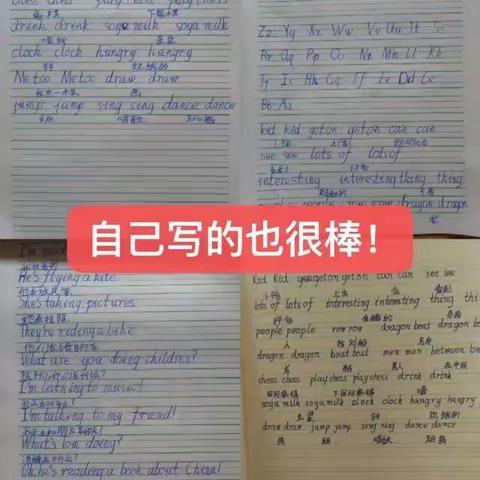 drink drink soya milk soya milk
clock clock hungry hungry
钟
Me too Me too draw draw
画
jump jump sing sing dance dance
Zz Yy Xx Ww Vv Uu Tt Ss
Rr Qq Pp Oo Nn Mm Ll Kk
Jj Ii Hh Gg Ff Ee Dd Cc
Bb Aa
kid kid get on get on can can
小孩 上车
see see lots of lots of
看到 许多
interesting interesting thing thing
dragon dragon
自己写的也很棒！
He's flying a kite.
She's taking pictures.
They're riding a bike
What are you doing children?
I'm listning to music!
I'm talking to my friend!
What's lom doing?
Oh, he's reading a book about China!
kid kid get on get on can can see see
小孩 上车 会 看到
lots of lots of interesting interesting thing thi
许多 有趣的 东西
people people row row dragon boat dragon b
人
dragon dragon boat boat men men between be
龙 船 男人
chess chess play chess play chess drink drink
喝
soya milk soya milk clock clock hungry hungry
豆浆 钟 饥饿的
draw draw jump jump sing sing dance dance
画 跳 唱歌 跳舞